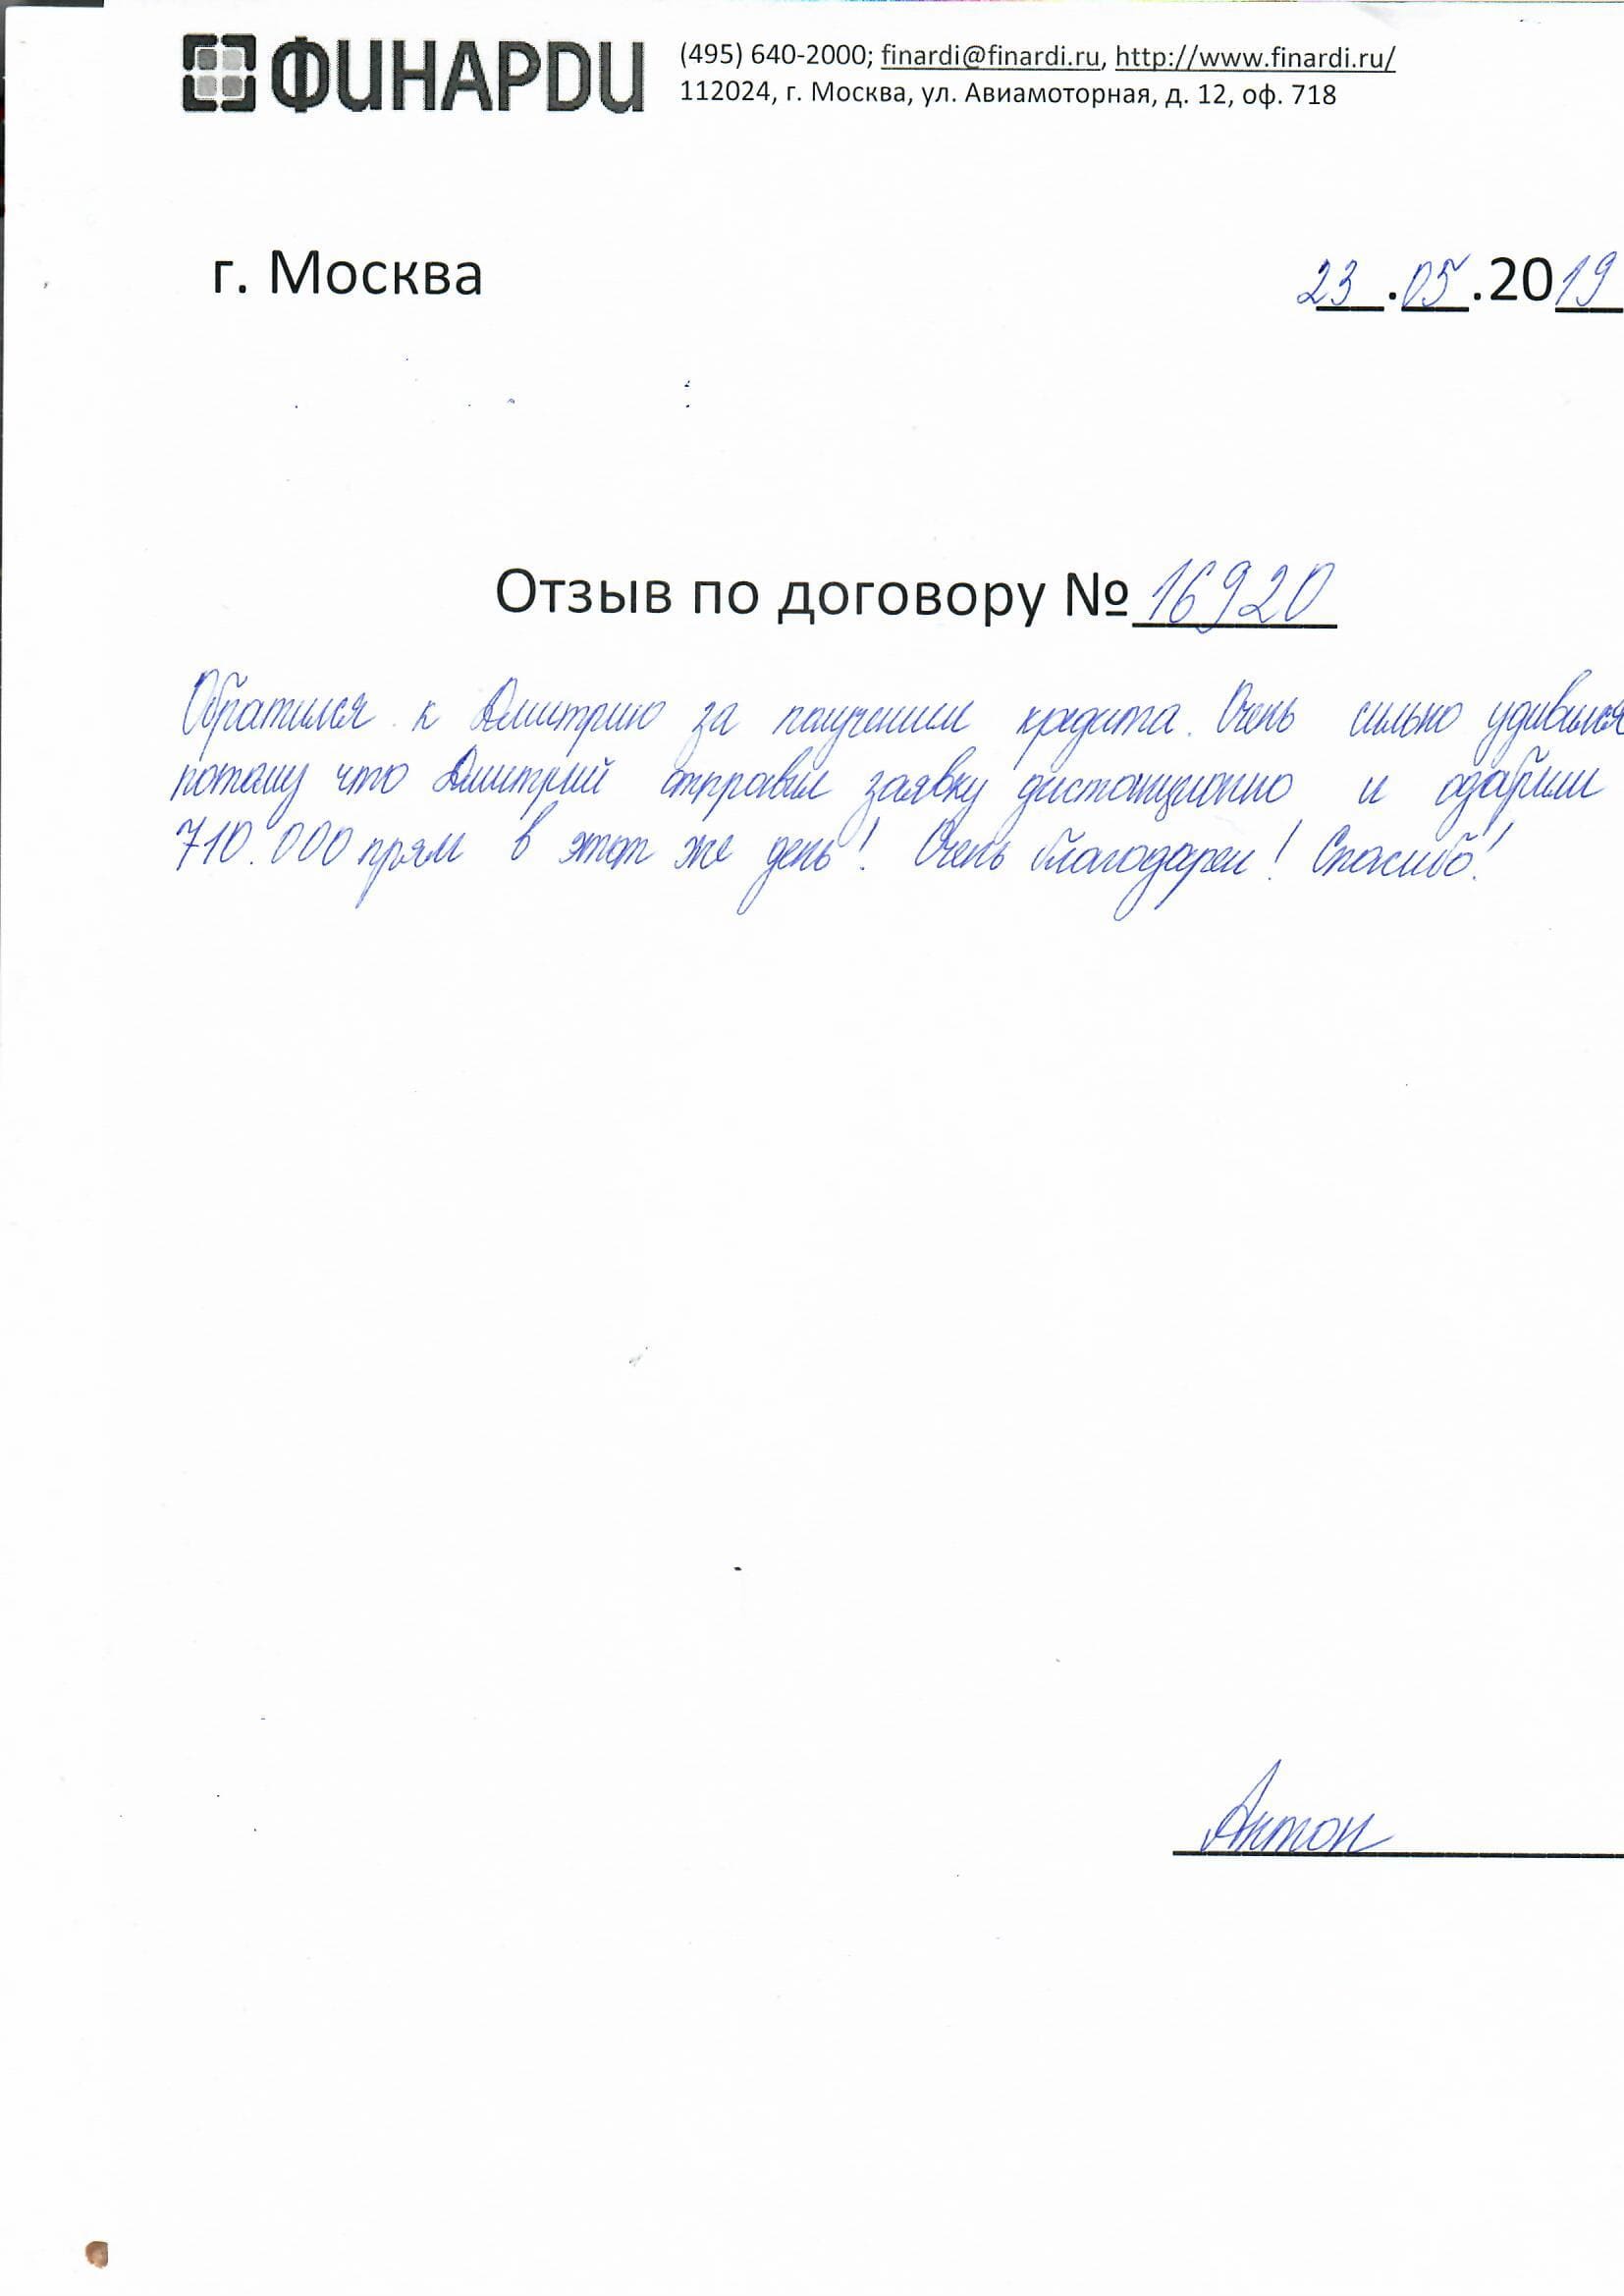 ФИНАРDИ
(495) 640-2000; finardi@finardi.ru, http://www.finardi.ru/
112024, г. Москва, ул. Авиамоторная, д. 12, оф. 718
г. Москва
23.05.2019
Отзыв по договору № 16920
Обратился к Дмитрию за получением кредита. Очень сильно удивился
потому что Дмитрий отправил заявку дистанционно и одобрили
710.000 прям в этот же день! Очень благодарен! Спасибо!
Антон